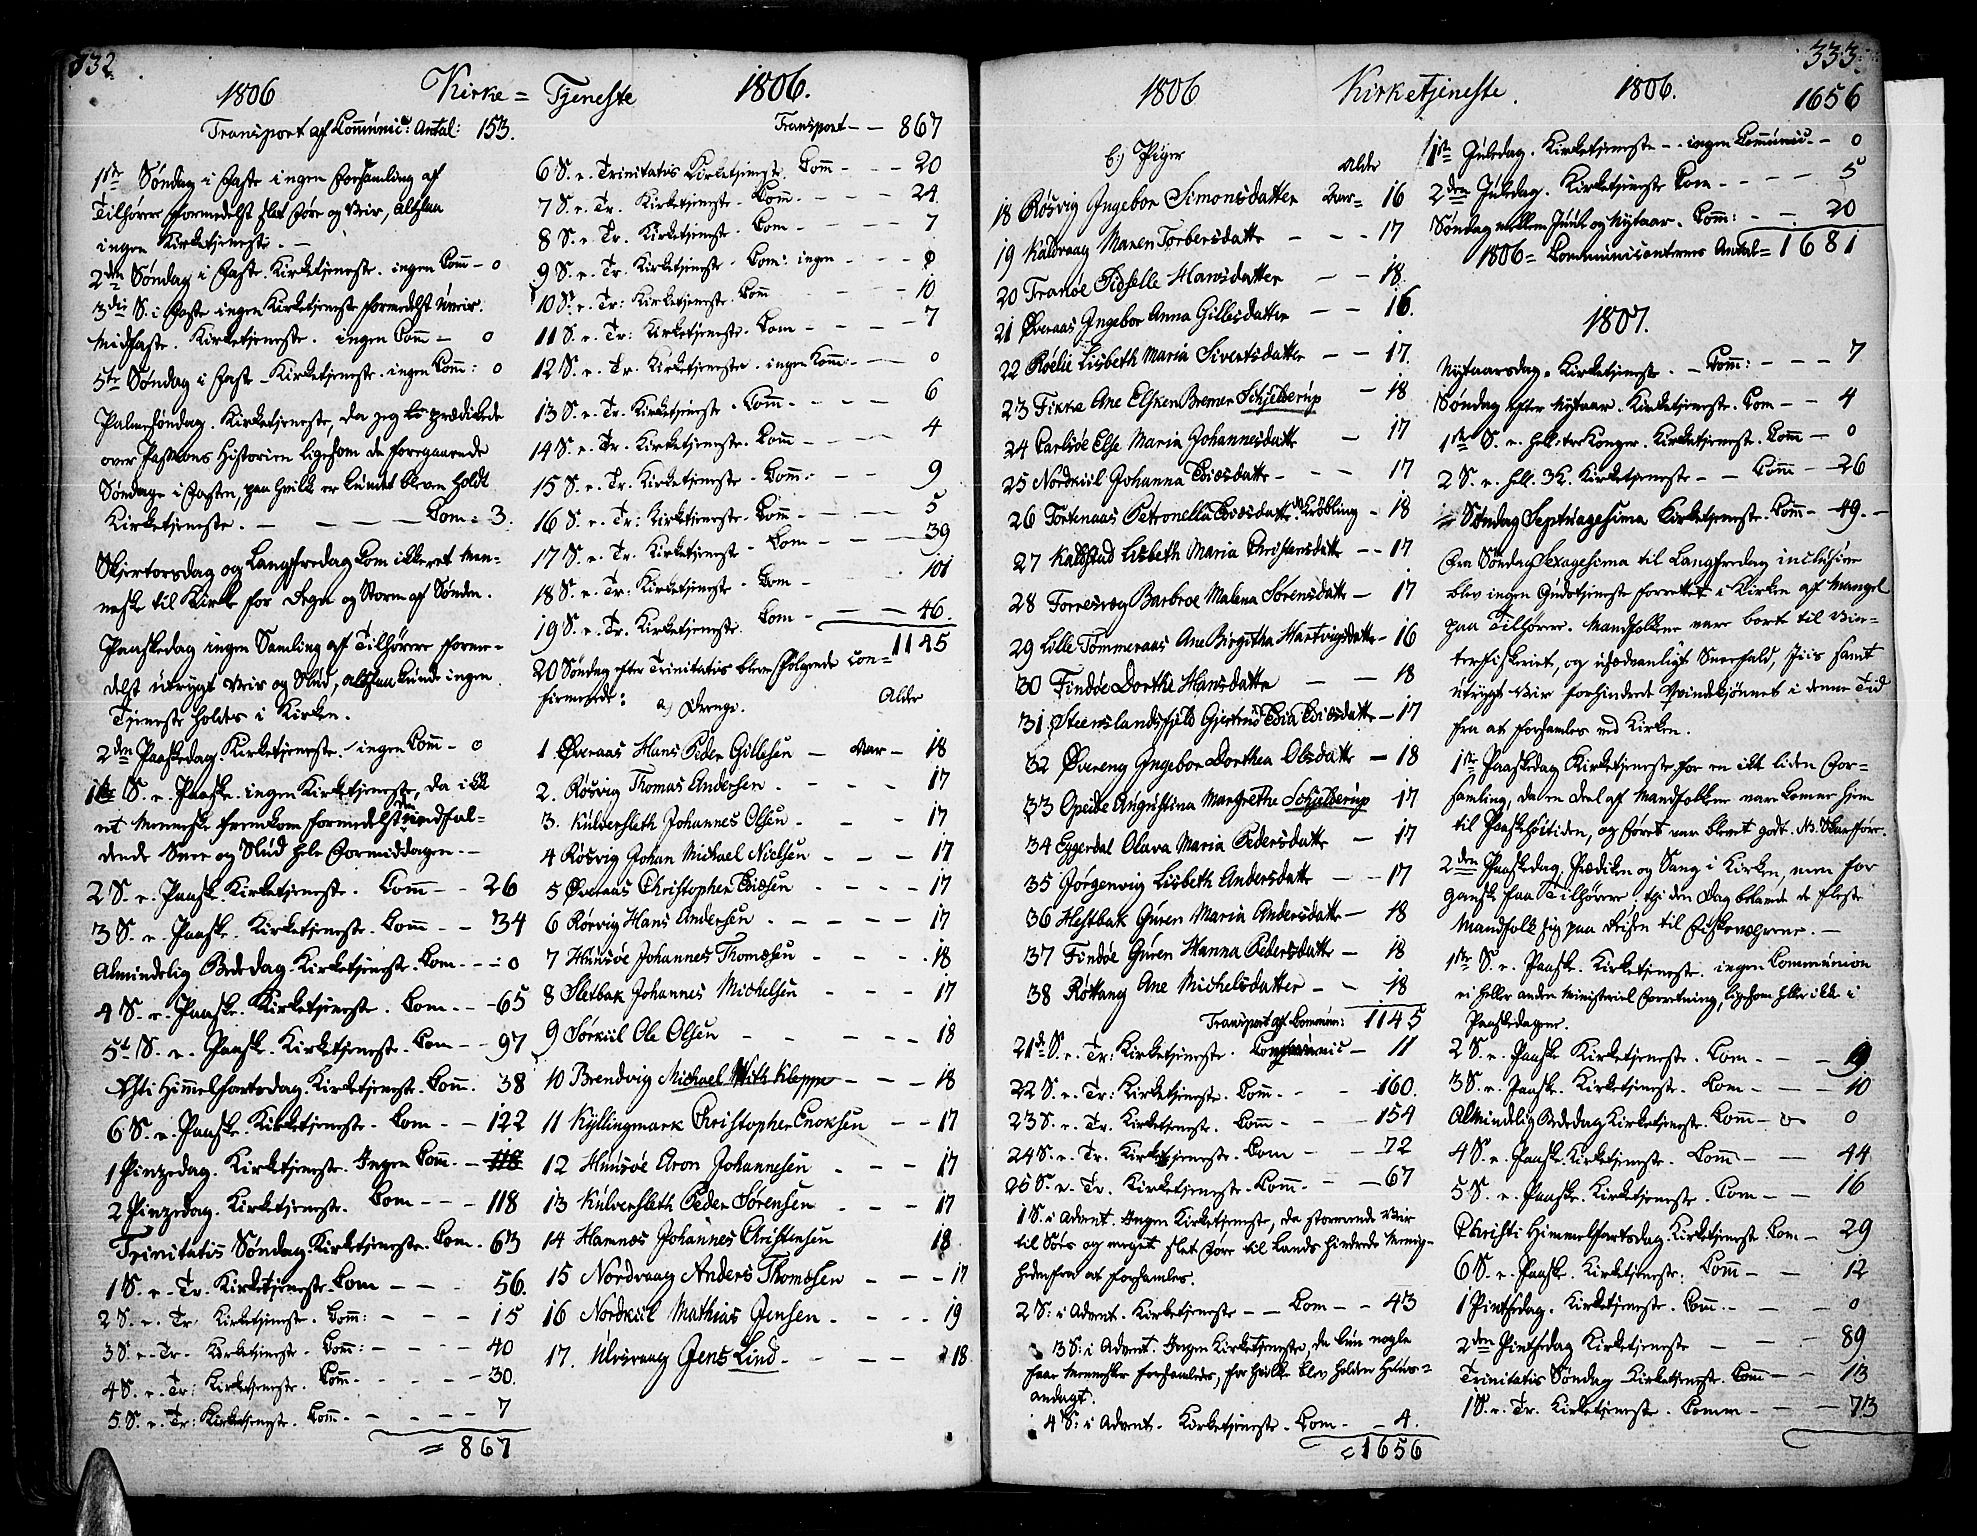 332.
1806 Kirke= Tjeneste 1806.
Transport af Communic: Antal: 153.
1ste Søndag i Faste ingen Forsamling af
Tilhørere formedelst slet Føre og Veir, altsaa
ingen Kirketjeneste. —
2den Søndag i Faste. Kirketjeneste. ingen Com̄ — 0
3die S. i Faste ingen Kirketjeneste formedelst Uveir.
Midfaste. Kirketjeneste. ingen Com̄ — 0
5te Søndag i Faste — Kirketjeneste. ingen Com̄: 0
Palmesøndag. Kirketjeneste, da jeg prædikede
over Passions Historien ligesom de foregaaende
Søndage i Fasten, paa hvilke er bleven holdt
Kirketjeneste. — — — — Com = 3.
Skjertorsdag og Langfredag kom ikke et Men-
neske til Kirke for Regn og Storm af Sønden.
Paaskedag ingen Samling af Tilhørere forme-
delst utrygt Veir og Slud, altsaa kunde ingen
Tjeneste holdes i Kirken.
2den Paaskedag. Kirketjeneste. ingen Com̄ — 0
1ste S. e. Paaske. ingen Kirketjeneste, da ikke
et Menneske fremkom formedelst den nedfal-
dende Snee og Slud hele Formiddagen. —
2 S. e. Paaske. Kirketjeneste. Com̄ — — 26
3 S. e. Paaske. Kirketjeneste. Com̄ — — 34
Almindelig Bededag. Kirketjeneste. Com. — — 0
4 S. e. Paaske. Kirketjeneste. Com. — — 65
5te S. e. Paaske. Kirketjeneste. Com — — 97
Christi Himmelfartsdag. Kirketjeneste. Com̄. 38
6 S. e. Paaske. Kirketjeneste. Com — — 122
1 Pinzedag. Kirketjeneste. Ingen Com̄. — 118
2 Pinzedag. Kirketjeneste. Com — — 118
Trinitatis Søndag Kirketjeneste. Com. 63
1 S. e. Tr. Kirketjeneste. Com — — — 56.
2 S. e. Tr. Kirketjeneste. Com̄: — — — — 15
3 S. e. Tr. Kirketjeneste. Com̄: — — — — 40
4 S. e. Tr: Kirketjeneste. Com̄. — — — — 30.
5. S. e. Tr: Kirketjeneste. Com̄. — — — — 7
= 867
Transport — — 867
6 S. e. Trinitatis Kirketjeneste. Com̄ — — — 20
7 S. e. Tr. Kirketjeneste. Com̄. — — — — 24
8 S. e. Tr. Kirketjeneste. Com — — — — 7
9 S. e. Tr. Kirketjeneste. Com: ingen — — — 0
10 S. e. Tr: Kirketjeneste. Com̄ — — — 10
11 S. e. Tr: Kirketjeneste. Com — — — — 7
12 S. e. Tr. Kirketjeneste. ingen Kom̄: — — 0
13 S. e. Tr. Kirketjeneste. Com̄. — — — — 6
14 S. e. Tr. Kirketjeneste. Com̄ — — — — 4
15 S. e. Tr. Kirketjeneste. Com̄: — — — 9
16 S. e. Tr: Kirketjeneste. Com̄ — — — — 5
17 S. e. Tr. Kirketjeneste. Com — — — 39
18 S. e. Tr. Kirketjeneste. Com — — — — 101
19 S. e. Tr. Kirketjeneste. Com — — — 46.
1145
20 Søndag efter Trinitatis bleve følgende con=
firmerede:
a.) Drenge. Alder
1. Øveraas Hans Peder Gillesen — Aar — 18
2. Røsvig Thomas Andersen. — — — 17
3. Kulversleth Johannes Olsen. — — — 17
4 Røsvig Johan Michael Nielsen — — — 17
5 Øveraas Christopher Thosen — — — — 17
6 Rørvig Hans Andersen. — — — — — 17
7 Huusøe Johannes Thomesen — — — — 18
8 Sletbak Johannes Michelsen — — — 17
9 Sørkiil Ole Olsen — — — — — 18
10 Brendvig Michael With Kleppe — — — 18
11 Kyllingmark Christopher Enoksen — — 17
12 Huusøe Aron Johannesen — — — 17
13 Kulversleth Peder Sørensen — — — 17
14 Hamnes Johannes Christensen 18
15 Nordvaag Anders Thomesen — — — 17
16 Nordkiil Mathias Jensen. — — — — 19
17. Ulvsvaag Jens Lind. — — — — 18
333.
1806 Kirketjeneste. 1806.
b.) Piger Alder
18 Røsvig Ingebor Simonsdatter Aar= 16
19 Kaldvaag Maren Torbersdatter — — — 17
20 Tranøe Sidselle Hansdatter — — 18.
21 Øveraas Ingebor Anna Gillesdatter — — 16.
22 Røelie Lisbeth Maria Sivertsdatter — — 17.
23 Fikke Ane Elsken Bremer Schjelderup — 18
24 Carlsøe Else Maria Johannesdatter — 17
25 Nordkiil Johanna datter — — — 17
26 Tortenaas Petronella datter Krøbling — 18
27 Kaldstad Lisbeth Maria Christensdatter — — 17
28 Torresvaag Barbroe Malena Sørensdatter — 17
29 Lille Tømmeraas Ane Birgitha Hartvigsdatter — 16
30 Findøe Dorthe Hansdatter — — 18
31. Steenslandsfjeld Gjertrud datter — 17
32 Øvereng Ingebor Dorthea Olsdatter — 18
33 Opeide Augustina Margrethe Schjelderup 17
34 Eggerdal Olava Maria Pedersdatter — 17
35 Jørgenvig Lisbeth Andersdatter — — 17
36 Hestbak Guren Maria Andersdatter — 18
37 Findøe Guren Hanna Pedersdatter — 18
38 Røttang Ane Michelsdatter — — 18
Transport af Commun: 1145
21de S. e. Tr: Kirketjeneste. Communic — 11
22 S. e. Tr: Kirketjeneste. Com̄. — — — 160.
23 S. e. Tr. Kirketjeneste. Com̄ — — — 154
24 S. e. Tr. Kirketjeneste. Com — — — 72
25 S. e. Tr. Kirketjeneste. Com̄. — — 67
1 S. i Advent. Ingen Kirketjeneste, da stormende Veir
til Søes og meget slet Føre til Lands hindrede Menig-
heden fra at forsamles.
2 S: i Advent. Kirketjeneste — — Com — — 43
3 S: i Advent. Ingen Kirketjeneste, da kun nogle
faae Mennesker forsamledes, for hvilke blev holden Huus=
andagt.
4 S: i Advent. Kirketjeneste. Com — — 4.
1656
1656
1ste Juledag. Kirketjeneste — ingen Communic. — 0
2den Juledag. Kirketjeneste Com — — — — 5
Søndag mellem Juul og Nytaar. Com̄: — — 20
1806= Communicanternes Antal= 1681
1807.
Nytaarsdag. Kirketjeneste. — Com̄: — — — 7
Søndag efter Nytaar. Kirketjeneste. Com — — 4
1ste S. e. Hell: tre Konger. Kirketjeneste. Com̄ — 0
2 S. e. Hell. 3 K. Kirketjeneste — — Com̄ — 26
Søndag Septuagesima Kirketjeneste. Com̄ — 49. —
Fra Søndag Sexagesima til Langfredag inclusive
blev ingen Gudstjeneste forrettet i Kirken af Mangel
paa Tilhørere. Mandfolkene vare borte til Vin-
terfiskeriet, og usædvanligt Sneefald, Iis samt
utrygt Veir forhindrede Qvindekjønnet i denne Tid
fra at forsamles ved Kirken.
1ste Paaskedag Kirketjeneste for en ikke liden For-
samling, da en Deel af Mandfolkene vare komne hjem
til Paaskehøitiden, og Føret var blevet godt.
2den Paaskedag, Prædiken og Sang i Kirken, men for
ganske faa Tilhørere: thi den Dag belavede de fleste
Mandfolk sig paa Reisen til Fiskeværene. —
1ste S. e. Paaske. Kirketjeneste. ingen Communion
ei heller anden Ministeriel Forretning, ligesom heller ikke i
Paaskedagene.
2 S. e. Paaske Kirketjeneste. Com. — — — 19
3 S. e. Paaske. Kirketjeneste. Com — — — 10
Almindelig Bededag Kirketjeneste. Com̄ — 0
4 S. e. Paaske. Kirketjeneste. Com̄ — — 44
5 S. e. Paaske. Kirketjeneste. Com — — 16
Christi Himmelfartsdag. Kirketjeneste. Com — 29
6 S. e. Paaske. Kirketjeneste: Com̄ — — 12
1 Pintsedag. Kirketjeneste. Com̄. — — — 0
2den Pintsedag Kirketjeneste — — — 89
Trinitatis Søndag Kirketjeneste. Com̄ — — 13
1 S. e. Tr. Kirketjeneste. Comm — — — 73